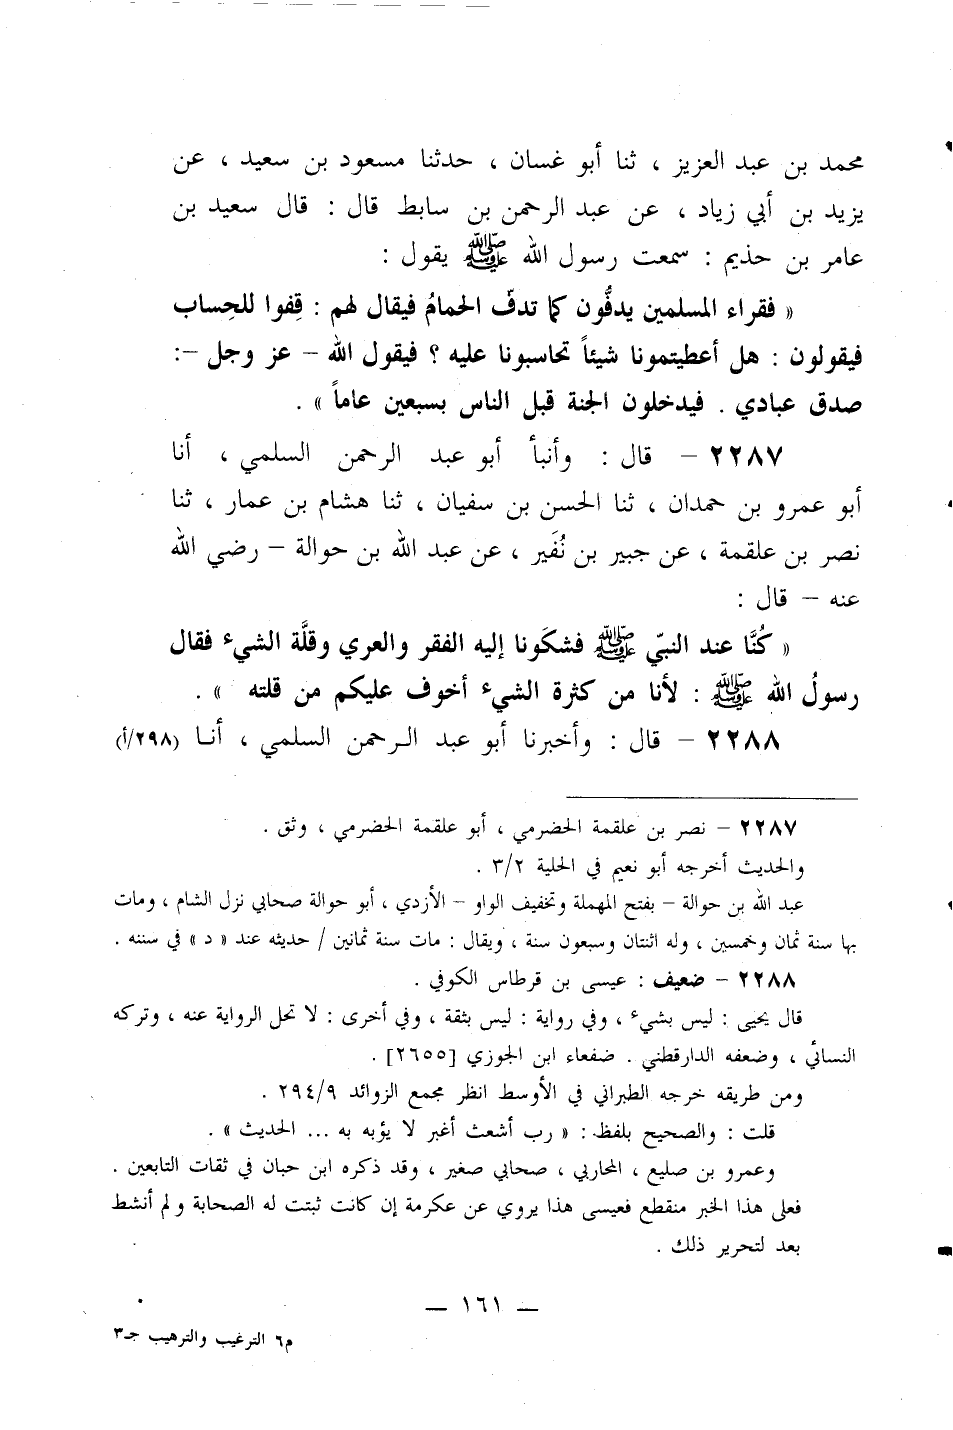 محمد بن عبد العزيز ، ثنا أبو غسان ، حدثنا مسعود بن سعيد ، عن
يزيد بن أبي زياد ، عن عبد الرحمن بن سابط قال : قال سعيد بن
عامر بن حذيم : سمعت رسول الله ﷺ يقول :
« فقراء المسلمين يدفُّون كما تدفّ الحمامُ فيقال لهم : قِفوا للحِساب
فيقولون : هل أعطيتمونا شيئاً تحاسبونا عليه ؟ فيقول الله – عز وجل –:
صدق عبادي . فيدخلون الجنة قبل الناس بسبعين عاماً » .
٢٢٨٧ – قال : وأنبأ أبو عبد الرحمن السلمي ، أنا
أبو عمرو بن حمدان ، ثنا الحسن بن سفيان ، ثنا هشام بن عمار ، ثنا
نصر بن علقمة ، عن جبير بن نُفَير ، عن عبد الله بن حوالة – رضي الله
عنه – قال :
« كُنَّا عند النبيّ ﷺ فشكَونا إليه الفقر والعري وقلَّة الشيء فقال
رسولُ الله ﷺ : لأنا من كثرة الشيء أخوف عليكم من قلته » .
٢٢٨٨ – قال : وأخبرنا أبو عبد الرحمن السلمي ، أنا (٢٩٨/أ)
٢٢٨٧ – نصر بن علقمة الحضرمي ، أبو علقمة الحضرمي ، وثق .
والحديث أخرجه أبو نعيم في الحلية ٣/٢ .
عبد الله بن حوالة – بفتح المهملة وتخفيف الواو – الأزدي ، أبو حوالة صحابي نزل الشام ، ومات
بها سنة ثمان وخمسين ، وله اثنتان وسبعون سنة ، ويقال : مات سنة ثمانين / حديثه عند « د » في سننه .
٢٢٨٨ – ضعيف : عيسى بن قرطاس الكوفي .
قال يحيى : ليس بشيء ، وفي رواية : ليس بثقة ، وفي أخرى : لا تحل الرواية عنه ، وتركه
النسائي ، وضعفه الدارقطني . ضفعاء ابن الجوزي [٢٦٥٥] .
ومن طريقه خرجه الطبراني في الأوسط انظر مجمع الزوائد ٢٩٤/٩ .
قلت : والصحيح بلفظ : « رب أشعث أغبر لا يؤبه به ... الحديث » .
وعمرو بن صليع ، المحاربي ، صحابي صغير ، وقد ذكره ابن حبان في ثقات التابعين .
فعلى هذا الخبر منقطع فعيسى هذا يروي عن عكرمة إن كانت ثبتت له الصحابة ولم أنشط
بعد لتحرير ذلك .
— ١٦١ —
م٦ الترغيب والترهيب جـ٣